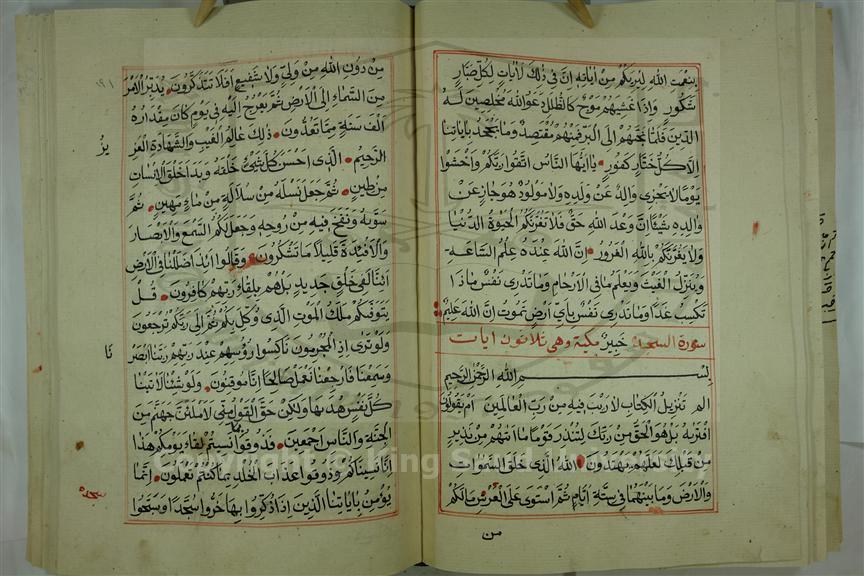 بنعمت الله ليريكم من اياته ان فى ذلك لايات لكل صبار
شكور واذا غشيهم موج كالظلل دعوا الله مخلصين له
الدين فلما نجيهم الى البر فمنهم مقتصد وما يجحد باياتنا
الا كل ختار كفور يا ايها الناس اتقوا ربكم واخشوا
يوما لا يجزى والد عن ولده ولا مولود هو جاز عن
والده شيئا ان وعد الله حق فلا تغرنكم الحيوة الدنيا
ولا يغرنكم بالله الغرور ان الله عنده علم الساعه
وينزل الغيث ويعلم ما فى الارحام وما تدرى نفس ماذا
تكسب غدا وما تدرى نفس باى ارض تموت ان الله عليم
سورة السجدة خبير مكية وهى ثلاثون ايات
بسم الله الرحمن الرحيم
الم تنزيل الكتاب لا ريب فيه من رب العالمين ام يقولون
افتريه بل هو الحق من ربك لتنذر قوما ما اتهم من نذير
من قبلك لعلهم يهتدون الله الذى خلق السموات
والارض وما بينهما فى ستة ايام ثم استوى على العرش مالكم
من
من دون الله من ولى ولا شفيع افلا تتذكرون يدبر الامر
من السماء الى الارض ثم يعرج اليه فى يوم كان مقداره
الف سنة مما تعدون ذلك عالم الغيب والشهادة العز
يز
الرحيم الذى احسن كل شئ خلقه وبدا خلق الانسان
من طين ثم جعل نسله من سلالة من ماء مهين ثم
سويه ونفخ فيه من روحه وجعل لكم السمع والابصار
والافئدة قليلا ما تشكرون وقالوا ائذا ضللنا فى الارض
ائنا لفى خلق جديد بل هم بلقاء ربهم كافرون قل
يتوفيكم ملك الموت الذى وكل بكم ثم الى ربكم ترجعون
ولو ترى اذ المجرمون ناكسوا رؤسهم عند ربهم ربنا ابصر
نا
وسمعنا فارجعنا نعمل صالحا انا موقنون ولو شئنا لاتينا
كل نفس هديها ولكن حق القول منى لاملئن جهنم من
الجنة والناس اجمعين فذوقوا بما نسيتم لقاء يومكم هذا
انا نسيناكم وذوقوا عذاب الخلد بما كنتم تعملون انما
يؤمن باياتنا الذين اذا ذكروا بها خروا سجدا وسبحوا
سجده
Copyright © King Saud University